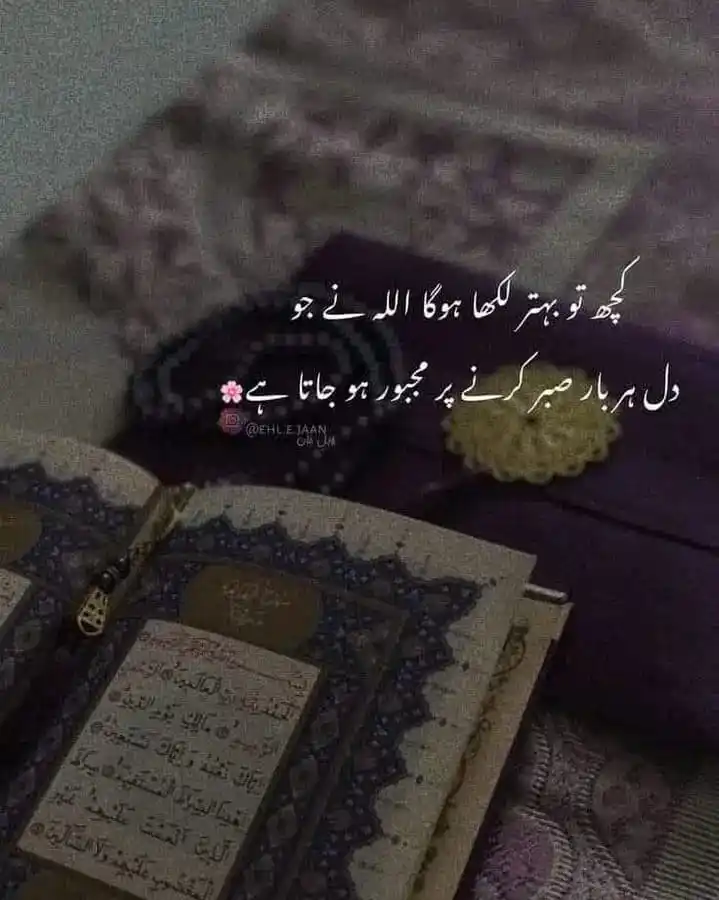 کچھ تو بہتر لکھا ہوگا اللہ نے جو
دل ہر بار صبر کرنے پر مجبور ہو جاتا ہے🌸
@EHL.E.JAAN
اہل جان
الْعَالَمِينَ
مَالِكِ يَوْمِ الدِّينِ
إِيَّاكَ نَعْبُدُ وَإِيَّاكَ نَسْتَعِينُ
اهْدِنَا الصِّرَاطَ الْمُسْتَقِيمَ صِرَاطَ
الَّذِينَ أَنْعَمْتَ عَلَيْهِمْ غَيْرِ
الْمَغْضُوبِ عَلَيْهِمْ وَلَا الضَّالِّينَ